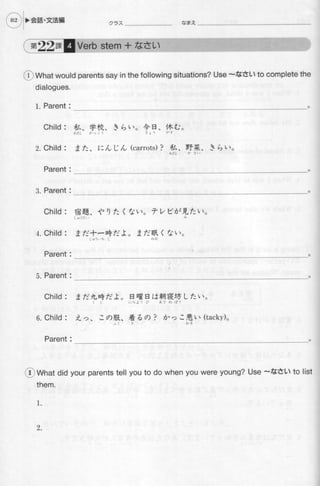 82 ▶会話・文法編
クラス なまえ
第22課 4 Verb stem + なさい
Ⅰ What would parents say in the following situations? Use 〜なさい to complete the
dialogues.
1. Parent : 。
Child : 私、学校、きらい。今日、休む。
わたし がっこう きょう やす
2. Child : また、にんじん (carrots)? 私、野菜、きらい。
わたし やさい
Parent : 。
3. Parent : 。
Child : 宿題、やりたくない。テレビが見たい。
しゅくだい み
4. Child : まだ十一時だよ。まだ眠くない。
じゅういちじ ねむ
Parent : 。
5. Parent : 。
Child : まだ九時だよ。日曜日は朝寝坊したい。
く じ にちようび あさねぼう
6. Child : えっ、この服、着るの? かっこ悪い (tacky)。
ふく き わる
Parent : 。
Ⅱ What did your parents tell you to do when you were young? Use 〜なさい to list
them.
1.
2.